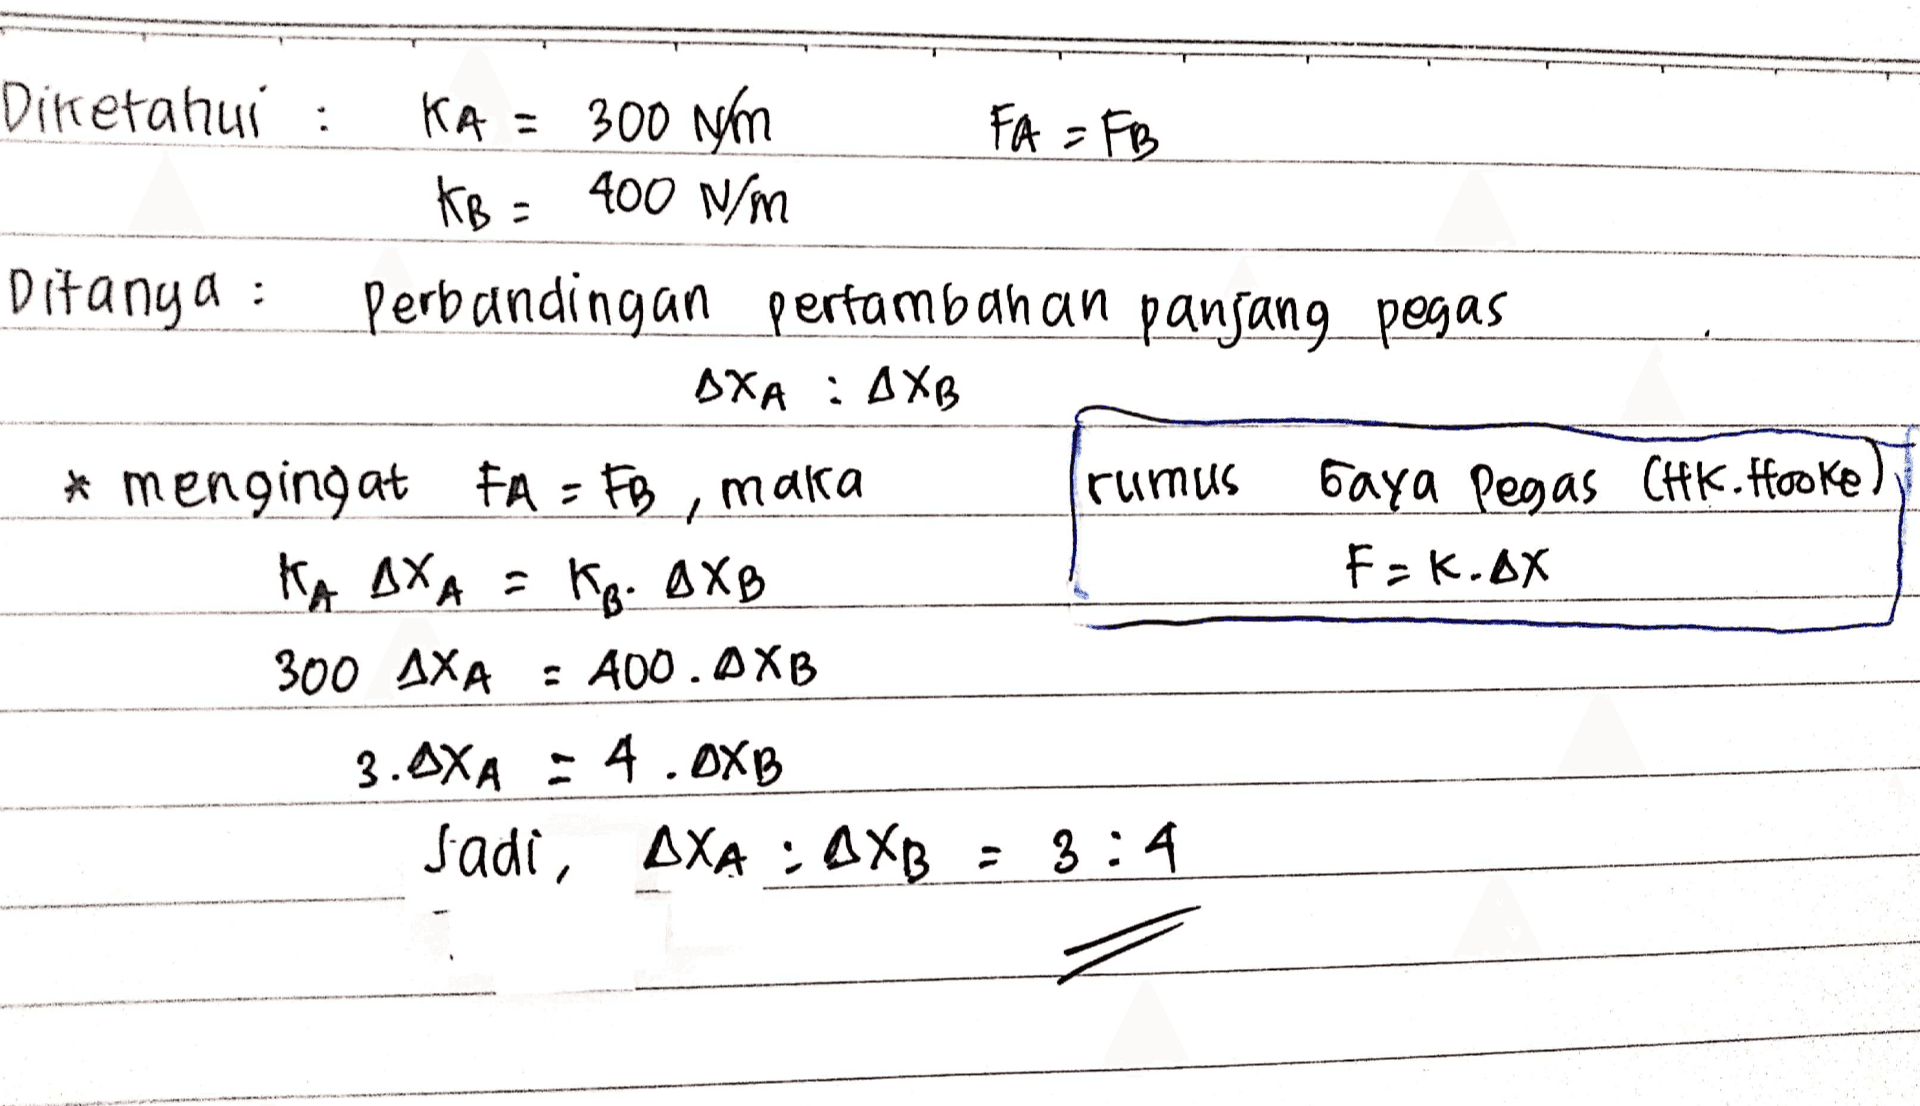 Diketahui : KA = 300 N/m FA = FB
KB = 400 N/m
Ditanya : Perbandingan pertambahan panjang pegas
ΔXA : ΔXB
* mengingat FA = FB , maka
KA ΔXA = KB. ΔXB
300 ΔXA = 400 . ΔXB
3.ΔXA = 4 . ΔXB
Jadi, ΔXA : ΔXB = 3 : 4
rumus Gaya Pegas (HK. Hooke)
F = K.ΔX